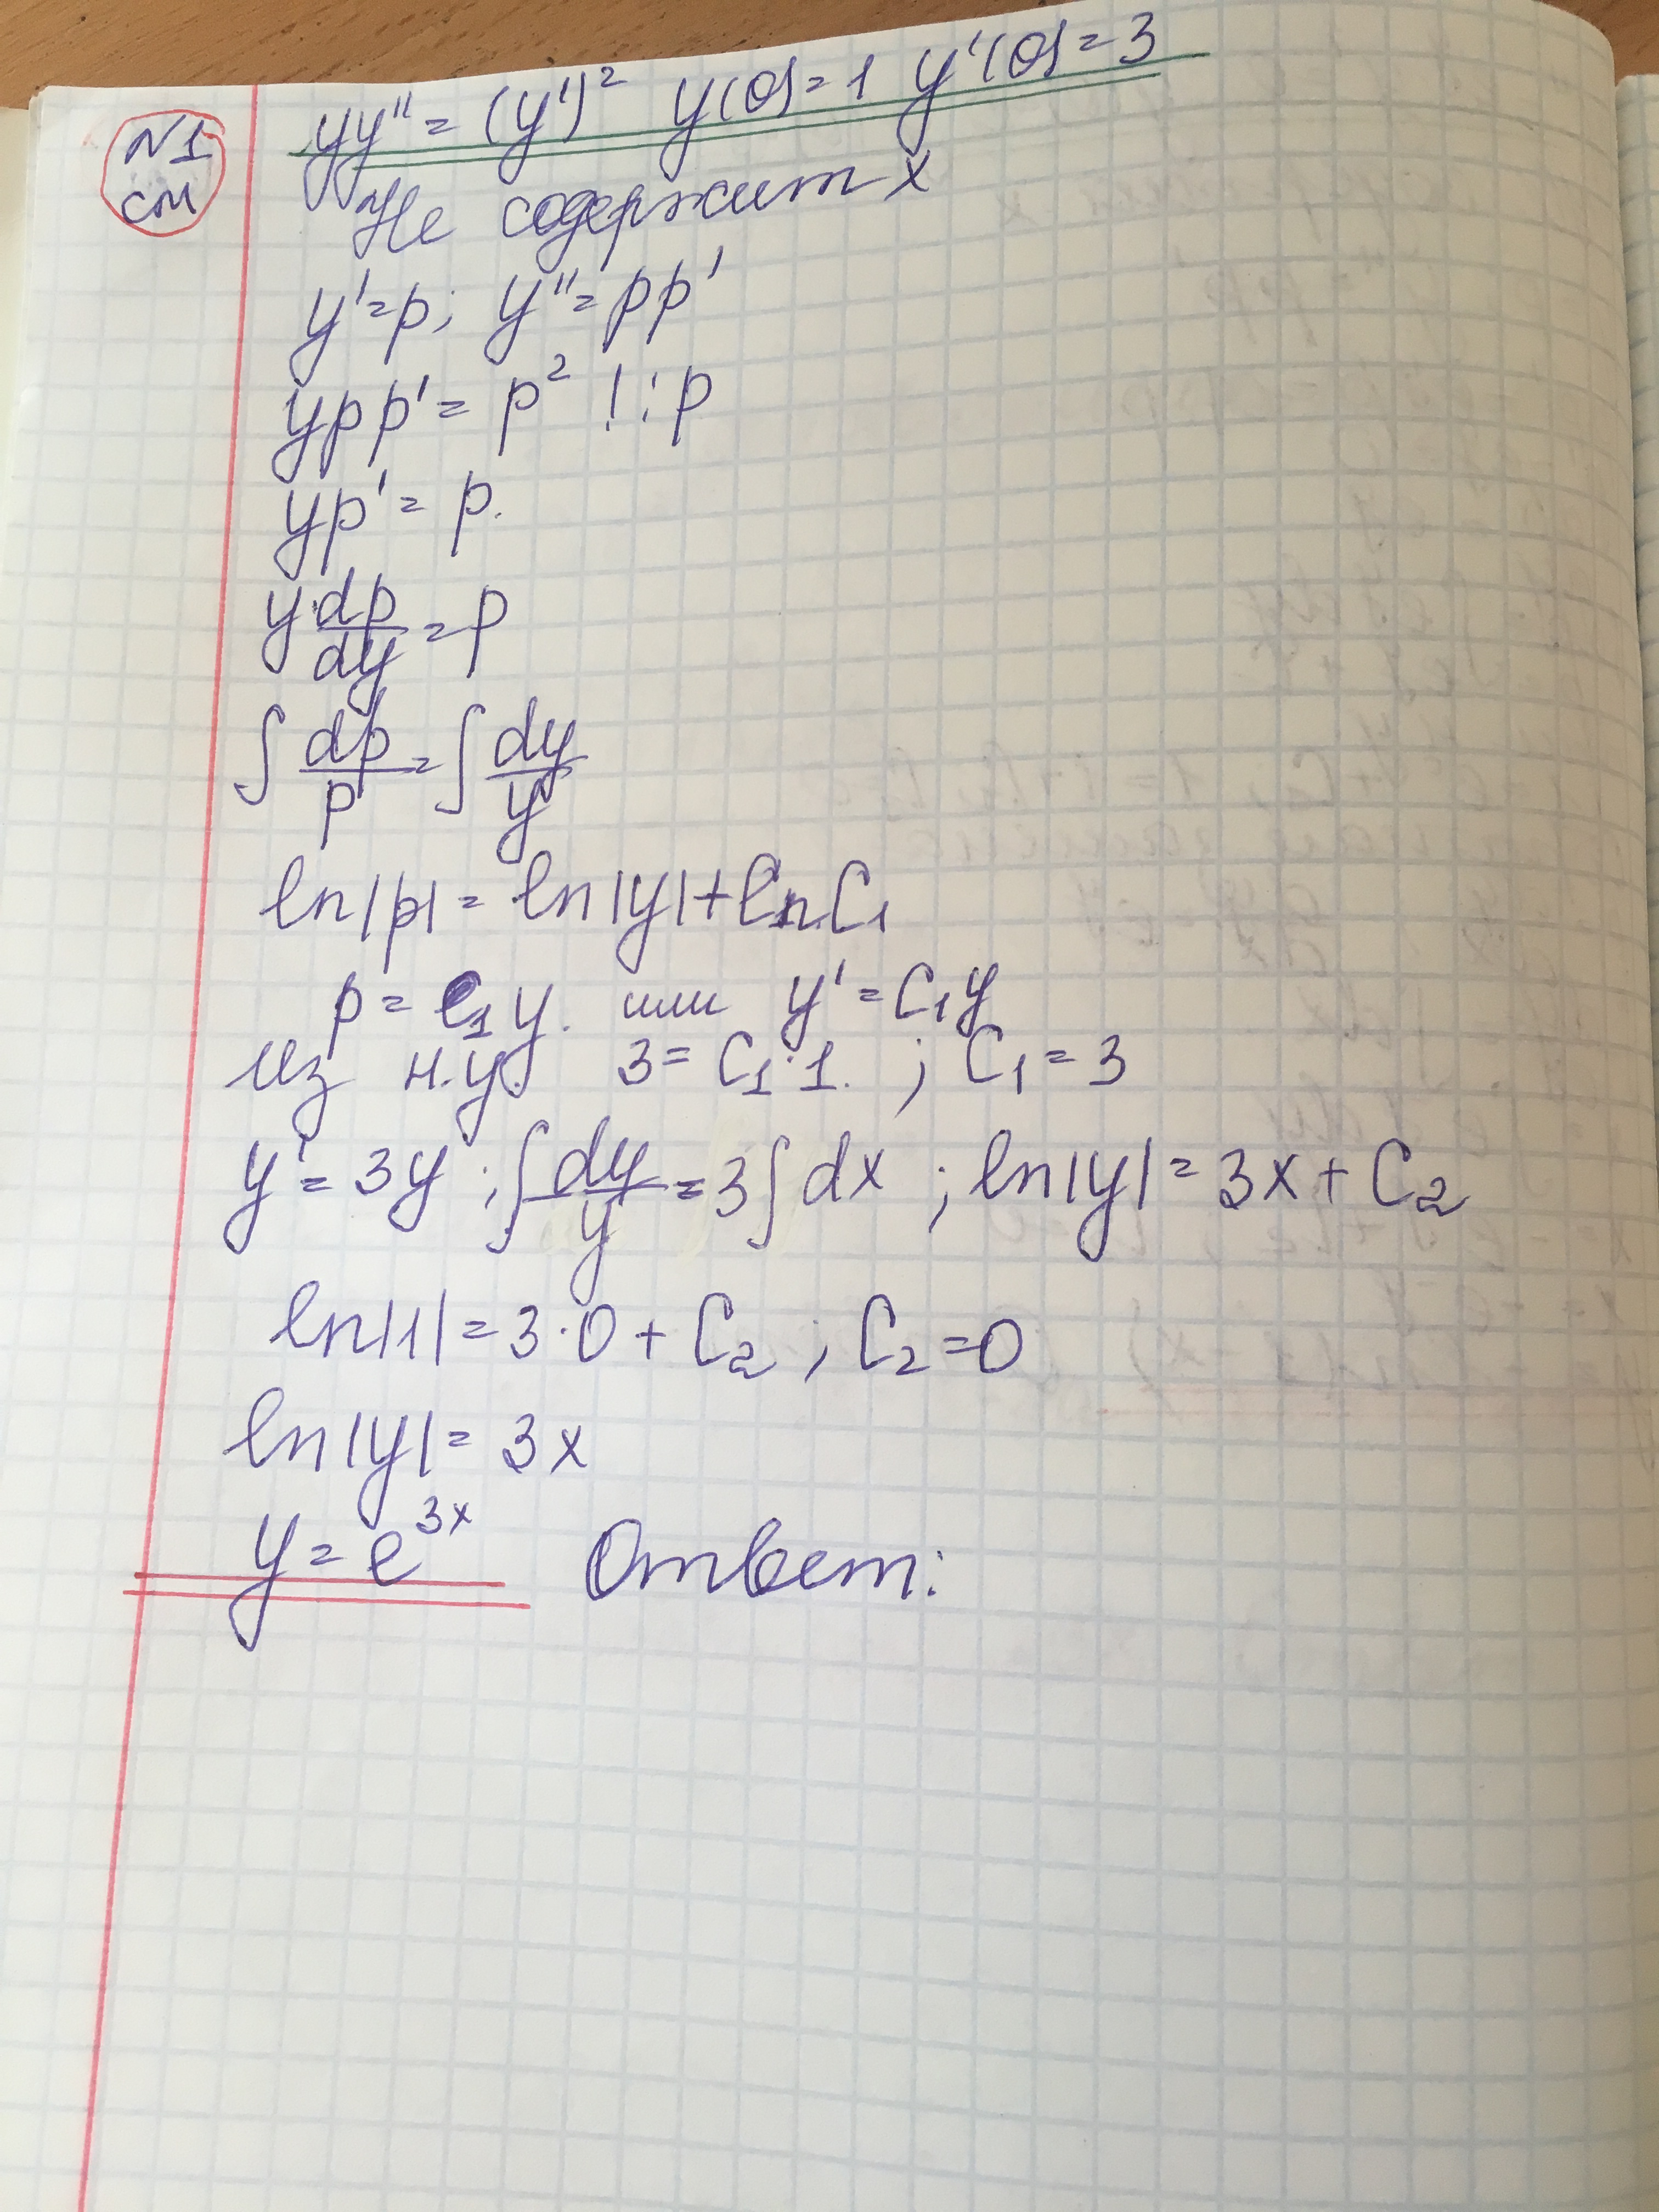 N1
см
yy''=(y')² y(0)=1 y'(0)=3
Не содержит x
y'=p; y''=pp'
ypp'=p² | :p
yp'=p.
y·dp/dy=p
∫dp/p=∫dy/y
ln|p|=ln|y|+lnC₁
p=C₁y. или y'=C₁y
Из н.у. 3=C₁·1. ; C₁=3
y'=3y ; ∫dy/y=3∫dx ; ln|y|=3x+C₂
ln|1|=3·0+C₂ ; C₂=0
ln|y|=3x
y=e³ˣ Ответ: